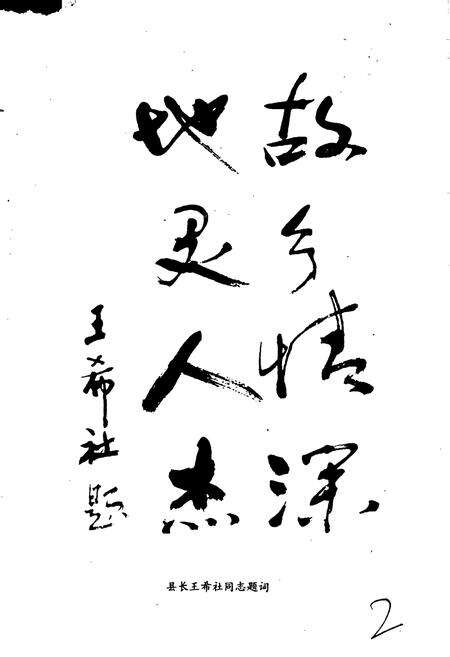 故乡情深
地灵人杰
王希社题
县长王希社同志题词
2